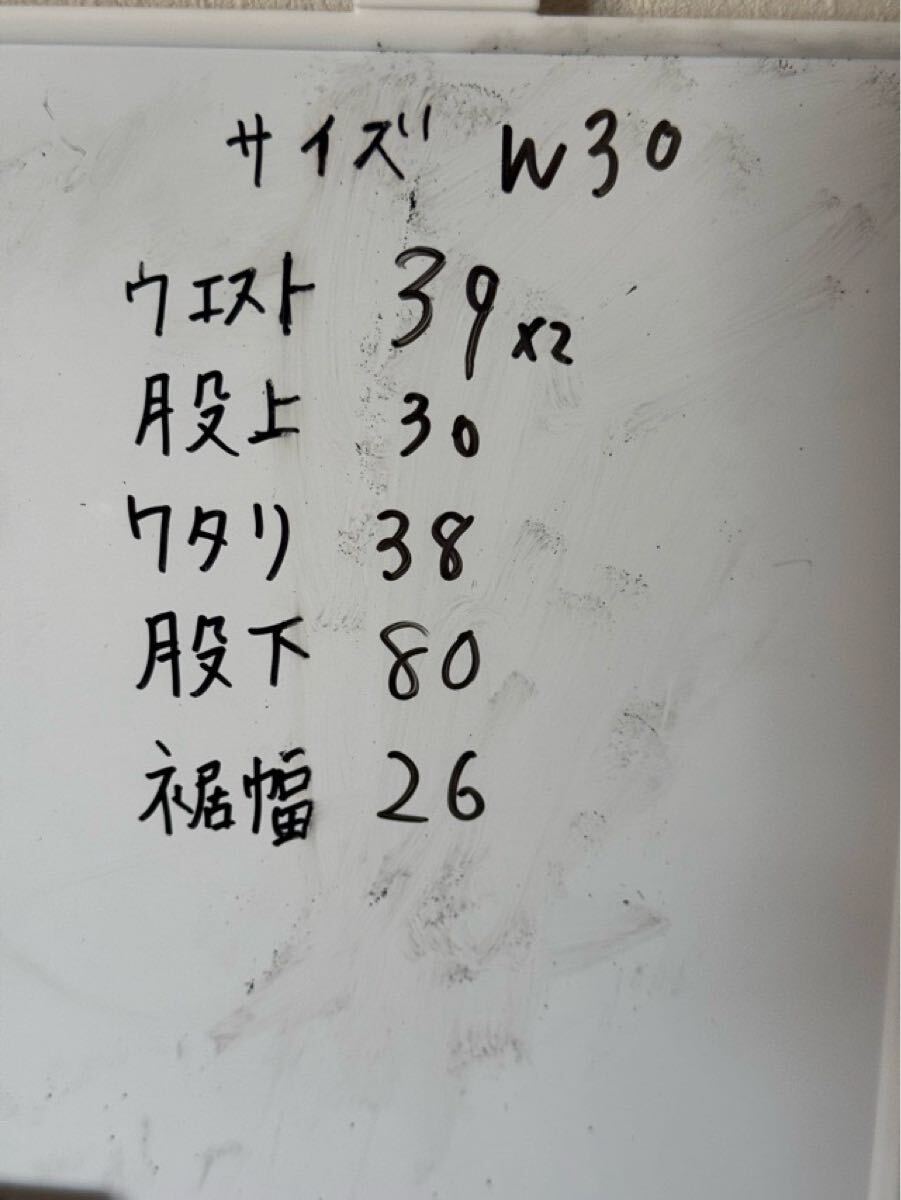 サイズ W30
ウエスト 39 x2
股上 30
ワタリ 38
股下 80
裾幅 26